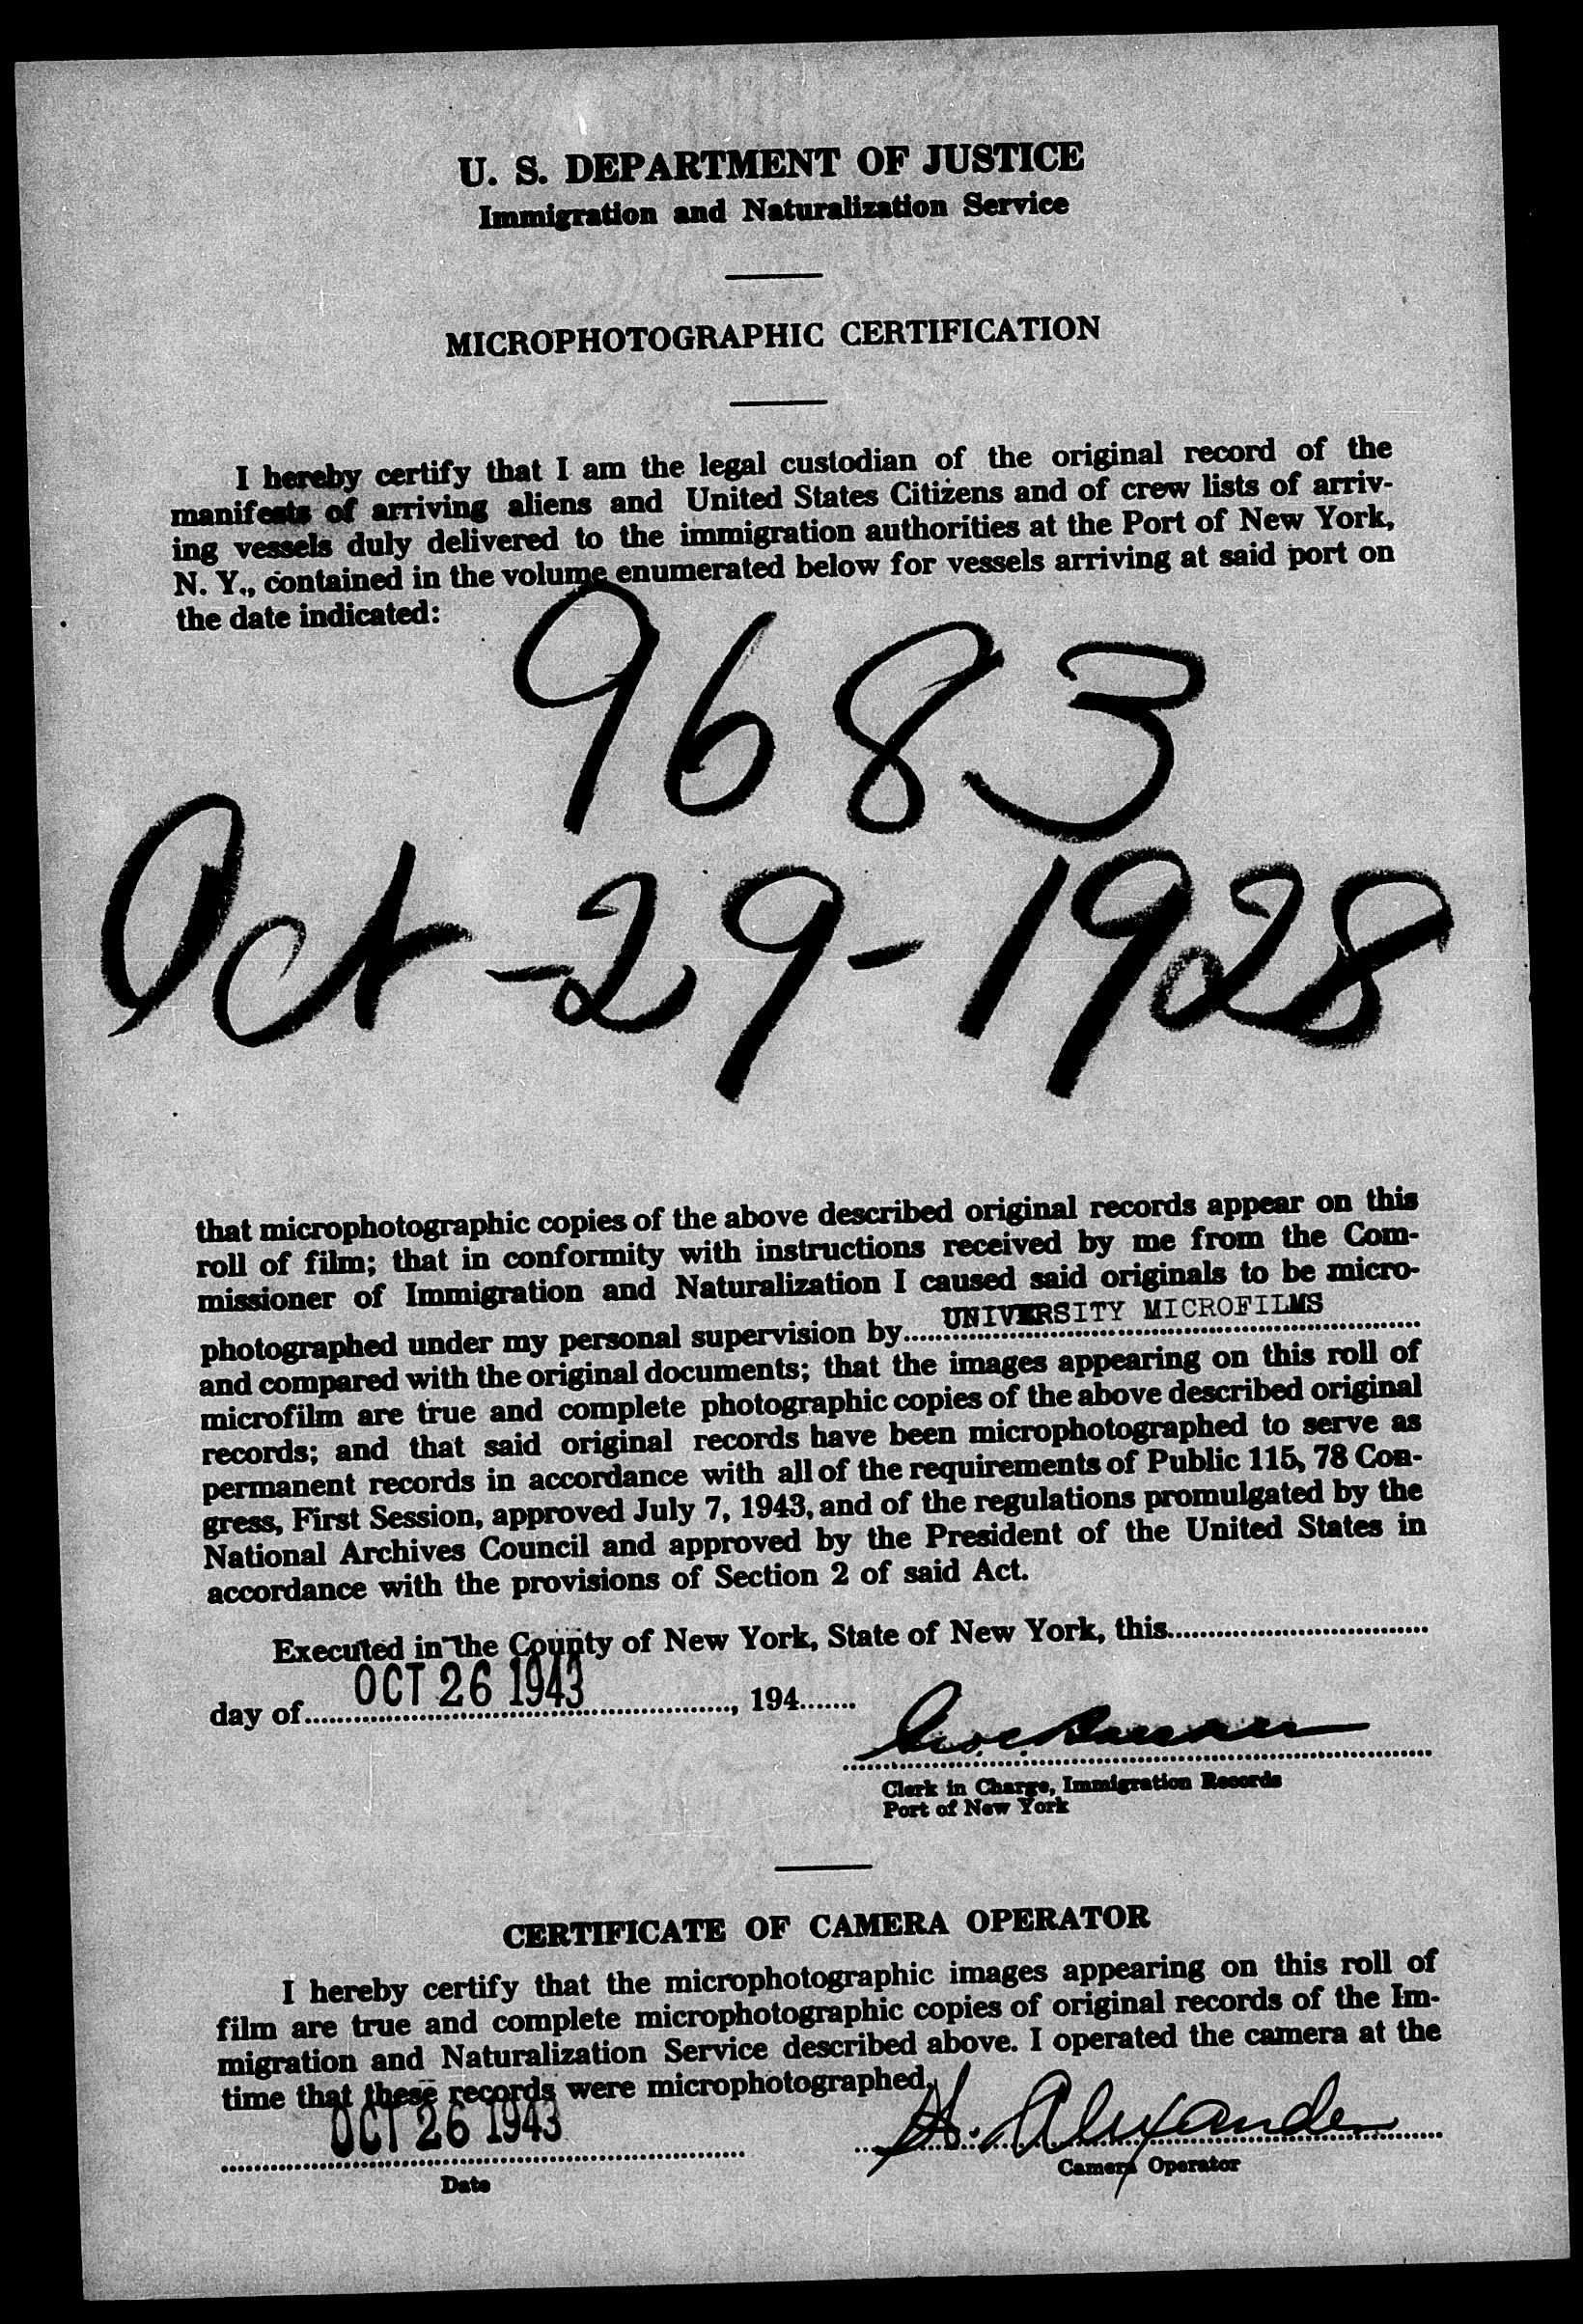 U. S. DEPARTMENT OF JUSTICE
Immigration and Naturalization Service
MICROPHOTOGRAPHIC CERTIFICATION
I hereby certify that I am the legal custodian of the original record of the
manifests of arriving aliens and United States Citizens and of crew lists of arriv-
ing vessels duly delivered to the immigration authorities at the Port of New York,
N. Y., contained in the volume enumerated below for vessels arriving at said port on
the date indicated:
9683
Oct-29-1928
that microphotographic copies of the above described original records appear on this
roll of film; that in conformity with instructions received by me from the Com-
missioner of Immigration and Naturalization I caused said originals to be micro-
photographed under my personal supervision by UNIVERSITY MICROFILMS
and compared with the original documents; that the images appearing on this roll of
microfilm are true and complete photographic copies of the above described original
records; and that said original records have been microphotographed to serve as
permanent records in accordance with all of the requirements of Public 115, 78 Con-
gress, First Session, approved July 7, 1943, and of the regulations promulgated by the
National Archives Council and approved by the President of the United States in
accordance with the provisions of Section 2 of said Act.
Executed in the County of New York, State of New York, this
day of OCT 26 1943, 194
Clerk in Charge, Immigration Records
Port of New York
CERTIFICATE OF CAMERA OPERATOR
I hereby certify that the microphotographic images appearing on this roll of
film are true and complete microphotographic copies of original records of the Im-
migration and Naturalization Service described above. I operated the camera at the
time that these records were microphotographed.
OCT 26 1943 Alexander
Date Camera Operator